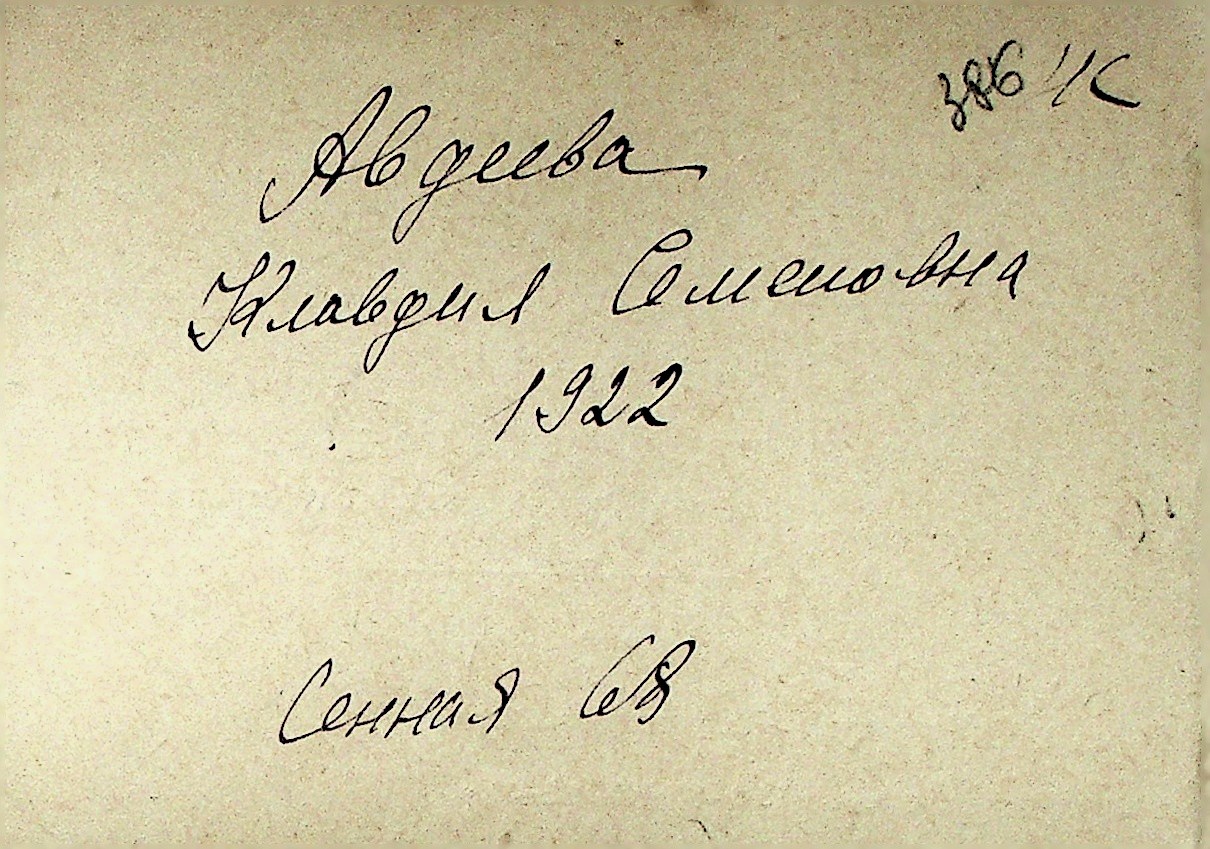 386 ЧК
Авдеева
Клавдия Семеновна
1922
Сенная 68